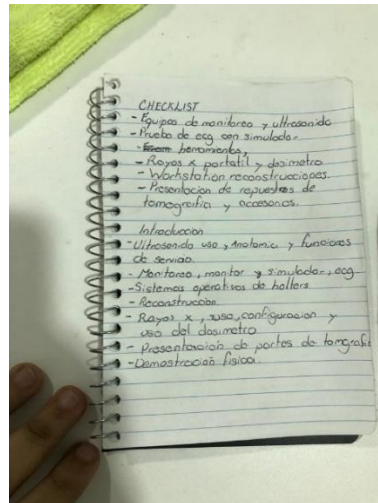 CHECKLIST
- Equipos de monitoreo y ultrasonido
- Prueba de ecg con simulador
- herramientas,
- Rayos x portatil y dosimetro
- Workstation reconstrucciones.
- Presentacion de repuestos de
tomografia y accesorios.
Introduccion
- Ultrasonido uso, Anatomia y funciones
de servicio.
- Monitoreo, monitor y simulador, ecg
- Sistemas operativos de holters
- Reconstrucción
- Rayos x, uso, configuracion y
uso del dosimetro
- Presentacion de partes de tomografia
- Demostracion fisica.